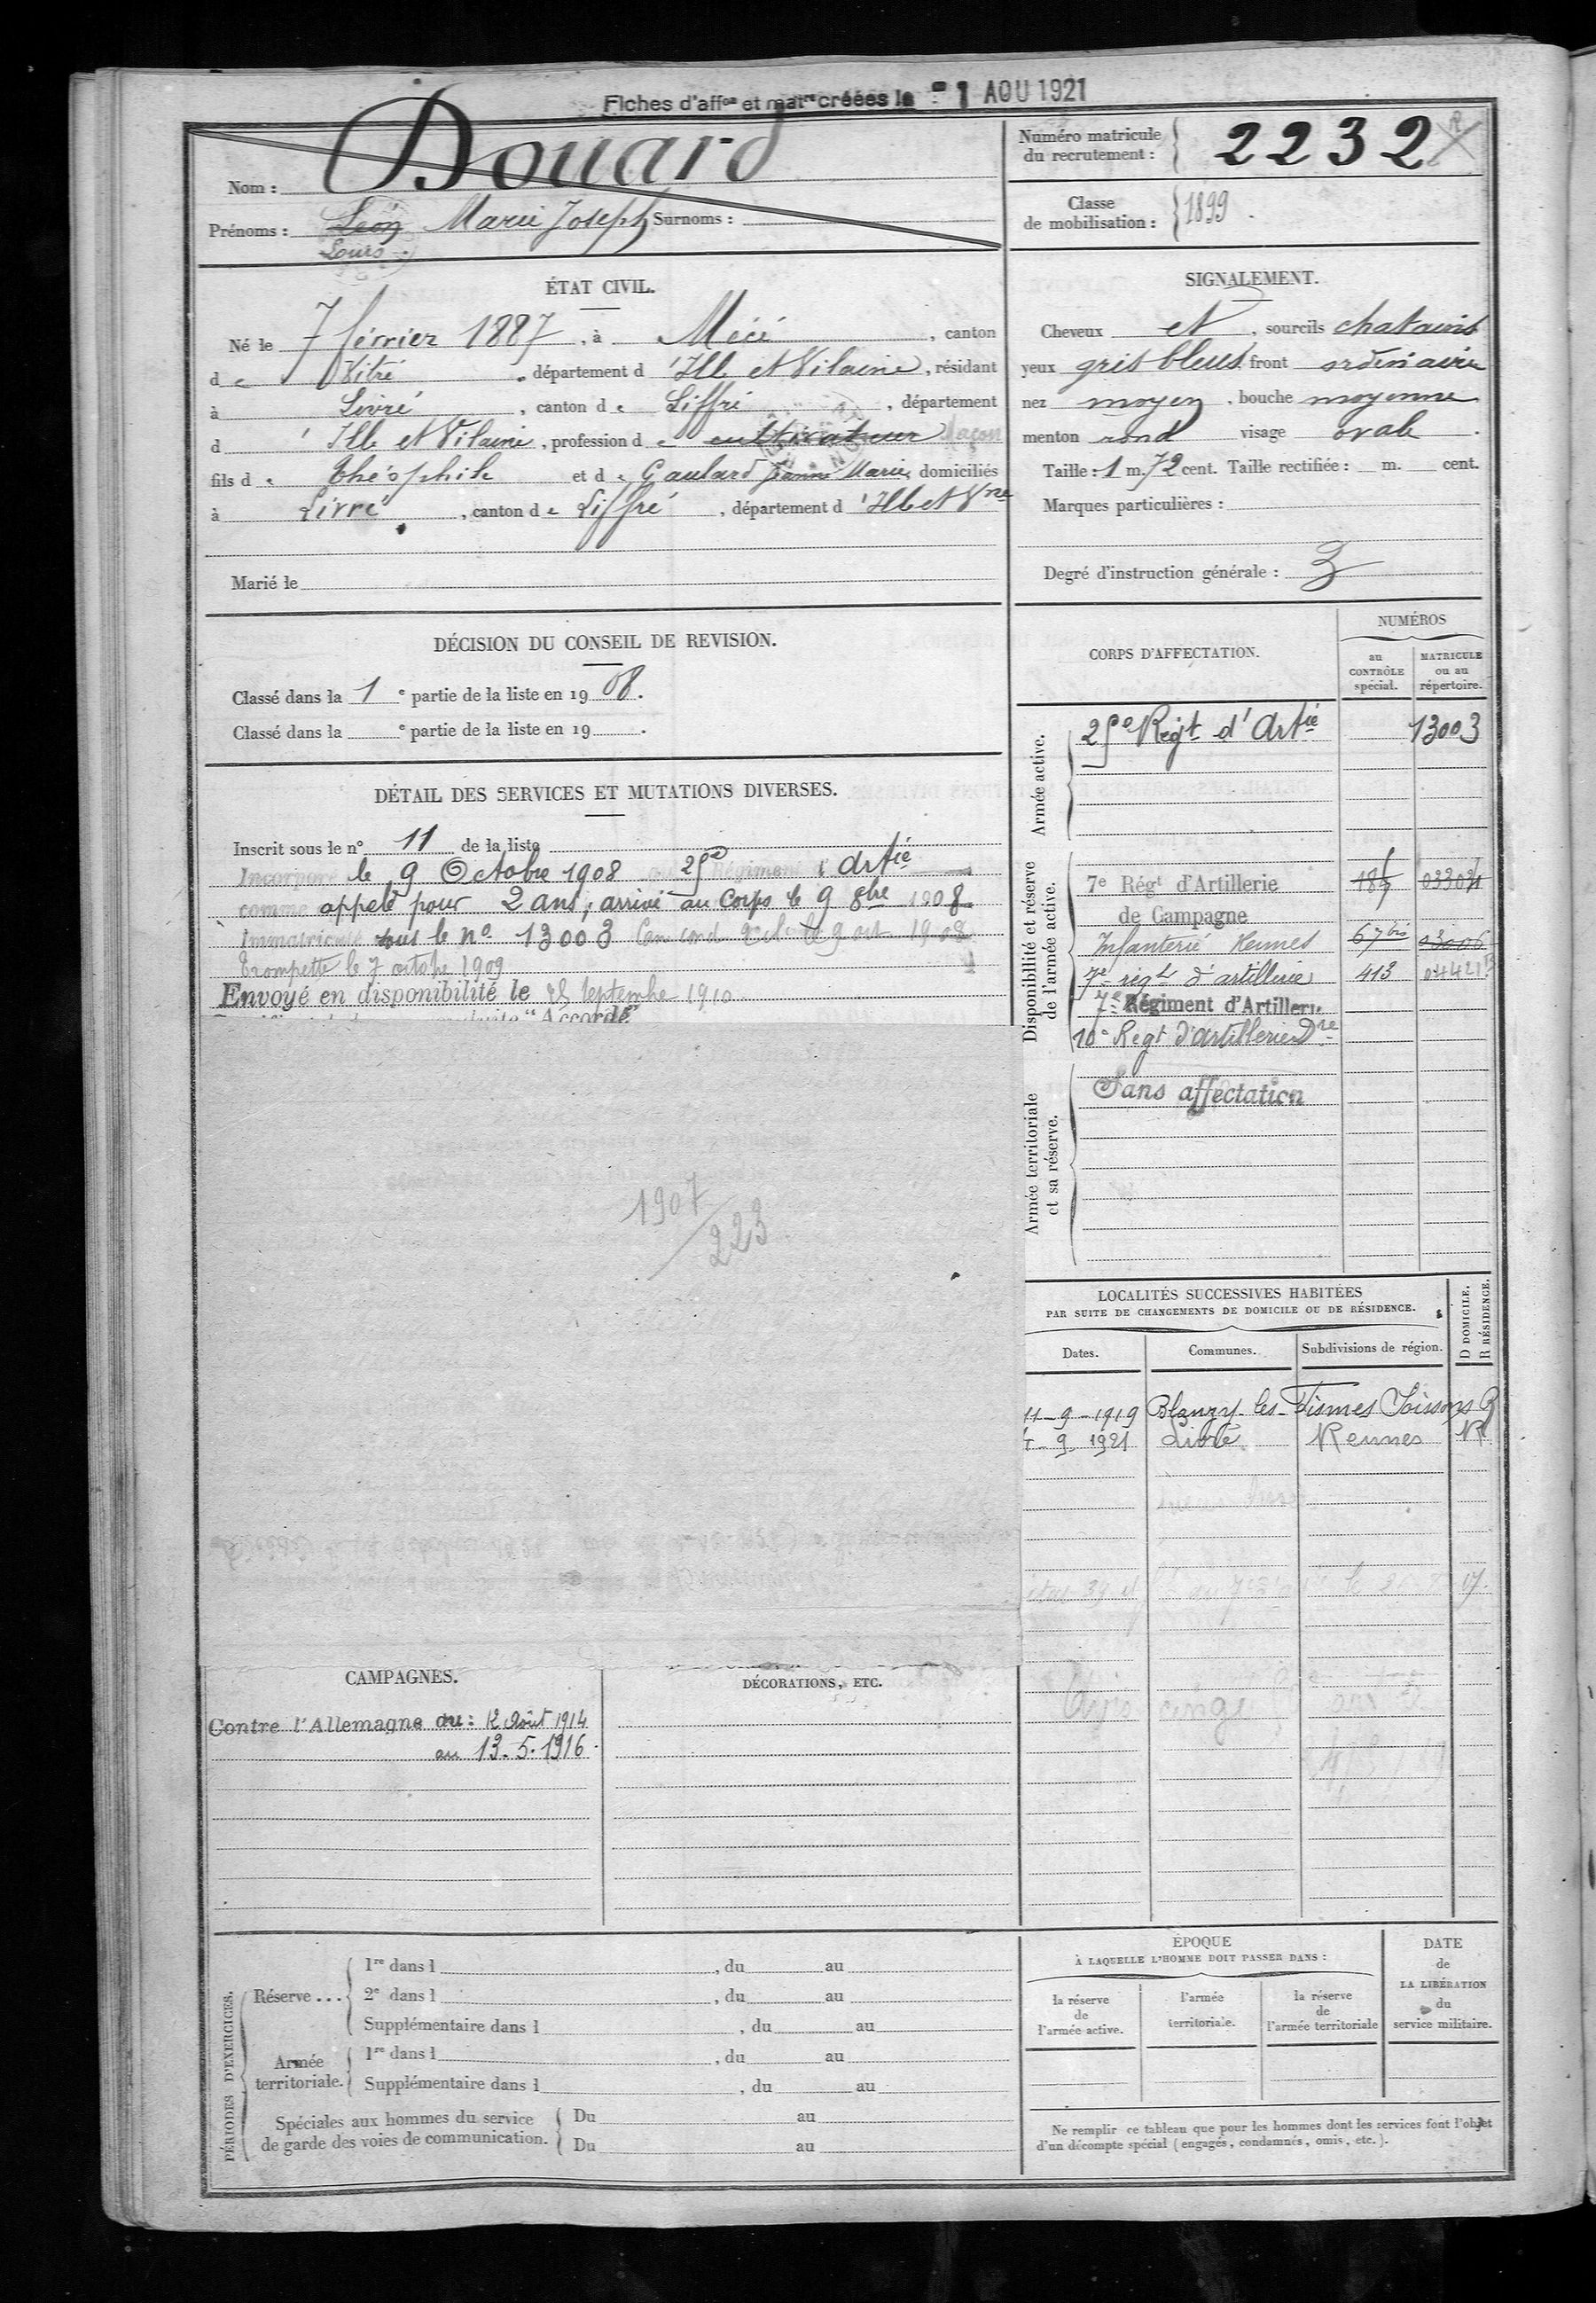 Fiches d'affon et matre créées le - 1 AOU 1921
Nom : Douard
Prénoms : Léon Marie Joseph Surnoms :
Louis
Numéro matricule du recrutement : 2232
Classe de mobilisation : 1899.
ÉTAT CIVIL.
Né le 7 février 1887, à Mécé, canton
de Vitré, département d'Ille et Vilaine, résidant
à Livré, canton de Liffré, département
d'Ille et Vilaine, profession de cultivateur Maçon
fils de Théophile et de Gaulard Jeanne Marie, domiciliés
à Livré, canton de Liffré, département d'Ille et Vne
Marié le
SIGNALEMENT.
Cheveux et, sourcils chatains
yeux gris bleus, front ordinaire
nez moyen, bouche moyenne
menton rond visage ovale.
Taille : 1 m. 72 cent. Taille rectifiée : m. cent.
Marques particulières :
Degré d'instruction générale : 3
DÉCISION DU CONSEIL DE REVISION.
Classé dans la 1e partie de la liste en 1908.
Classé dans la e partie de la liste en 19 .
DÉTAIL DES SERVICES ET MUTATIONS DIVERSES.
Inscrit sous le n° 11 de la liste
Incorporé le 9 Octobre 1908 au Régiment d'Artie
comme appelé pour 2 ans, arrivé au Corps le 9 8bre 1908
Immatriculé sous le no 13003
Trompette le 7 octobre 1909
Envoyé en disponibilité le 25 Septembre 1910.
"Accordé"
1907/223
CORPS D'AFFECTATION.
NUMÉROS
au CONTRÔLE spécial.
MATRICULE ou au répertoire.
Armée active.
Regt d'Artie 13003
Disponibilité et réserve de l'armée active.
7e Régt d'Artillerie
de Campagne
Infanterie Rennes 67 bis 03006
7e régt d'artillerie 413
7e Régiment d'Artillerie
10e Regt d'Artillerie Dre
Armée territoriale et sa réserve.
Sans affectation
LOCALITÉS SUCCESSIVES HABITÉES
PAR SUITE DE CHANGEMENTS DE DOMICILE OU DE RÉSIDENCE.
D DOMICILE.
R RÉSIDENCE.
Dates. Communes. Subdivisions de région.
11-9-1919 Blanzy-les-Fismes Soissons R
4-9 1921 Livré Rennes R
CAMPAGNES.
Contre l'Allemagne du : 12 Août 1914
au 13.5.1916.
DÉCORATIONS, ETC.
PÉRIODES D'EXERCICES.
Réserve ...
1re dans l , du au
2e dans l , du au
Supplémentaire dans l , du au
Armée territoriale.
1re dans l , du au
Supplémentaire dans l , du au
Spéciales aux hommes du service
de garde des voies de communication.
Du au
Du au
ÉPOQUE
À LAQUELLE L'HOMME DOIT PASSER DANS :
la réserve de l'armée active.
l'armée territoriale.
la réserve de l'armée territoriale
DATE
de
LA LIBÉRATION
du
service militaire.
Ne remplir ce tableau que pour les hommes dont les services font l'objet
d'un décompte spécial (engagés, condamnés, omis, etc.).